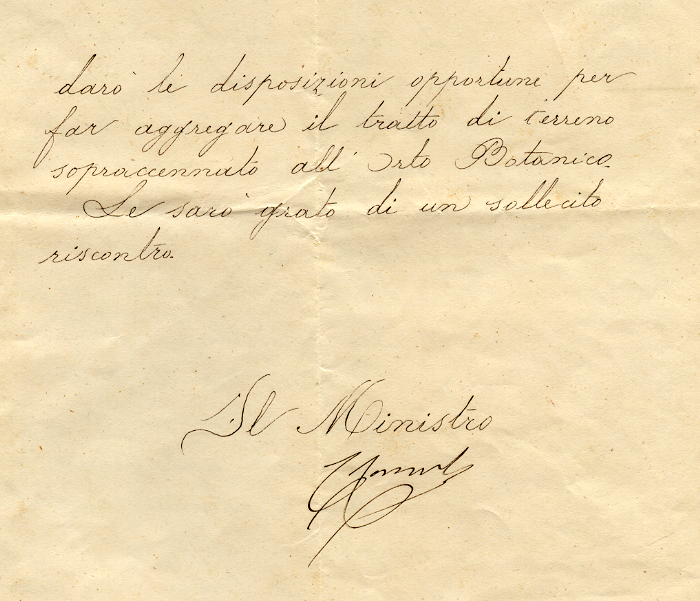 darò le disposizioni opportune per
far aggregare il tratto di terreno
sopraccennato all' Orto Botanico.
Le sarò grato di un sollecito
riscontro.
Il Ministro